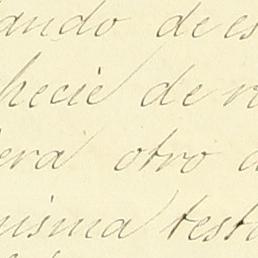 ando de es
hecie de r
era otro a
misma test